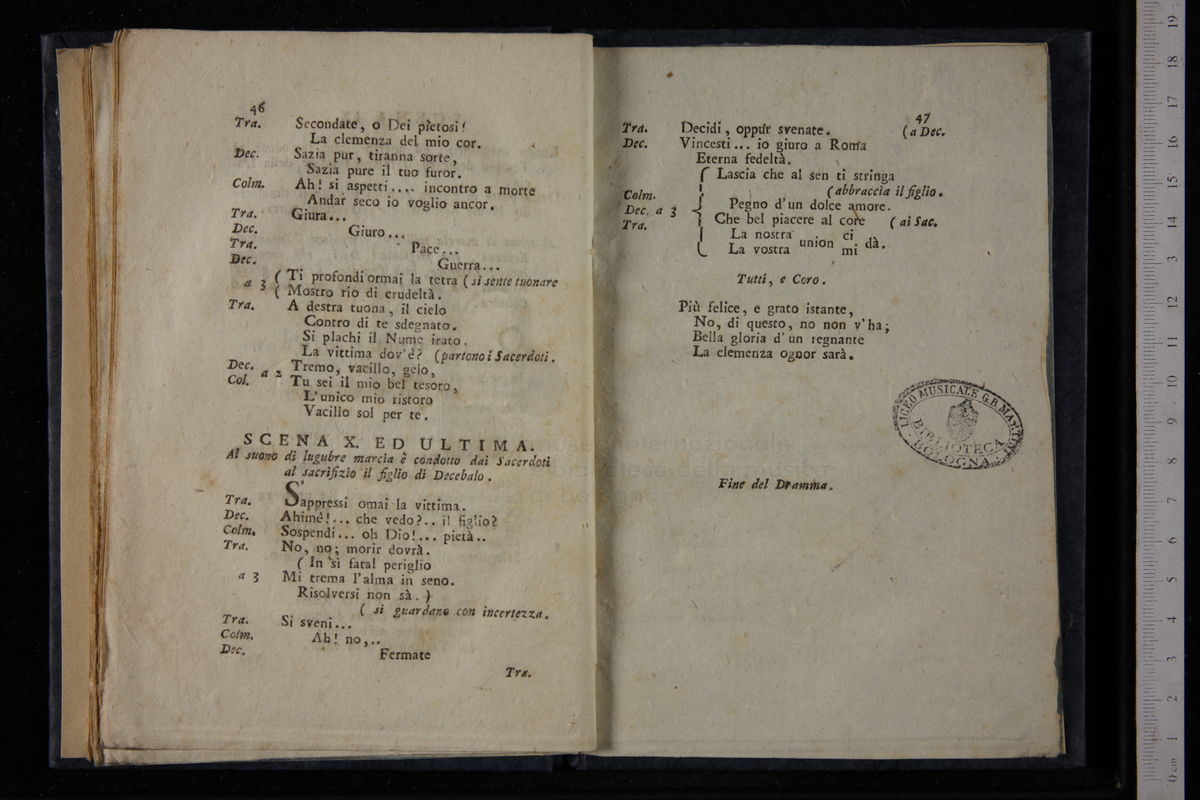 46
Tra. Secondate, o Dei pietosi!
La clemenza del mio cor.
Dec. Sazia pur, tiranna sorte,
Sazia pure il tuo furor.
Colm. Ah! si aspetti.... incontro a morte
Andar seco io voglio ancor.
Tra. Giura...
Dec. Giuro...
Tra. Pace...
Dec. Guerra...
a 3 ( Ti profondi ormai la terra ( si sente tuonare
( Mostro rio di crudeltà.
Tra. A destra tuona, il cielo
Contro di te sdegnato.
Si plachi il Nume irato.
La vittima dov'è? (partono i Sacerdoti.
Dec. a 2 Tremo, vacillo, gelo,
Col. Tu sei il mio bel tesoro,
L'unico mio ristoro
Vacillo sol per te.
SCENA X. ED ULTIMA.
Al suono di lugubre marcia è condotto dai Sacerdoti
al sacrifizio il figlio di Decebalo.
Tra. S'appressi omai la vittima.
Dec. Ahimè!... che vedo?.. il figlio?
Colm. Sospendi... oh Dio!... pietà..
Tra. No, no; morir dovrà.
( In sì fatal periglio
a 3 Mi trema l'alma in seno.
Risolversi non sà. )
( si guardano con incertezza.
Tra. Si sveni...
Colm. Ah! no,..
Dec. Fermate
Tra.
47
Tra. Decidi, oppur svenate. (a Dec.
Dec. Vincesti... io giuro a Roma
Eterna fedeltà.
Lascia che al sen ti stringa
(abbraccia il figlio.
Colm. Pegno d'un dolce amore.
Dec. a 3 Che bel piacere al core (ai Sac.
Tra. La nostra union ci dà.
La vostra mi
Tutti, e Coro.
Più felice, e grato istante,
No, di questo, no non v'ha;
Bella gloria d'un regnante
La clemenza ognor sarà.
LICEO MUSICALE G.B. MARTINI
BIBLIOTECA
BOLOGNA
Fine del Dramma.
0 cm 1 2 3 4 5 6 7 8 9 10 11 12 13 14 15 16 17 18 19